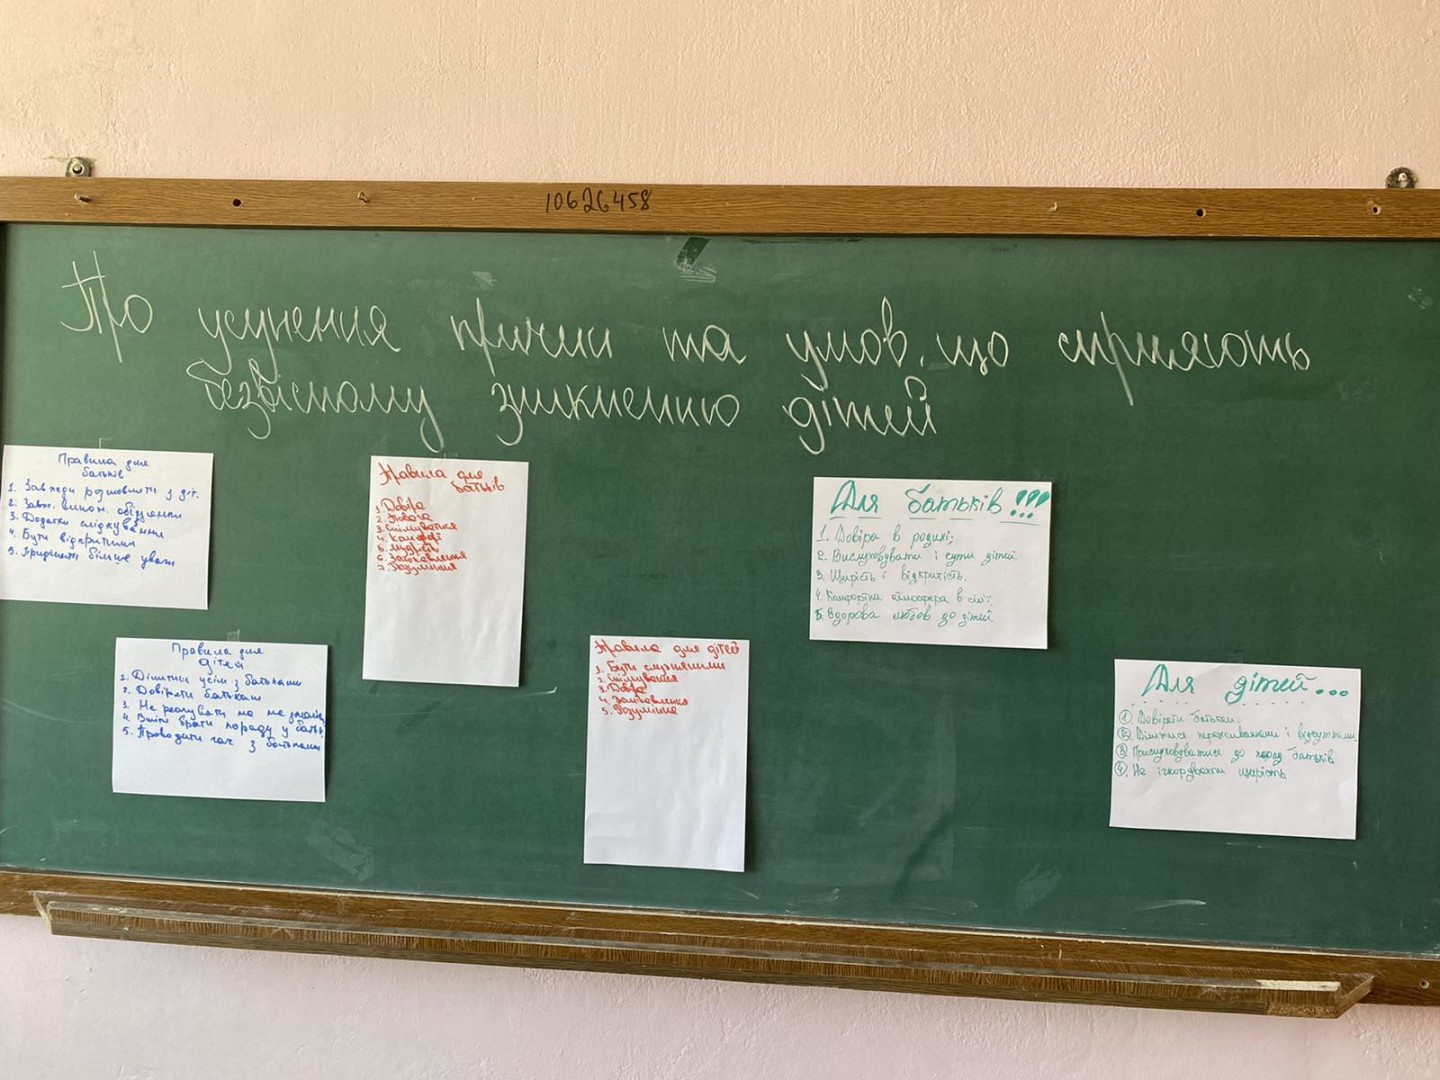 10626458
Про усунення причин та умов, що сприяють
безвісному зникненню дітей
Правила для
батьків
1. Завжди розмовляти з діт.
2. Завж. викон. обіцянки
3. Додатки слідкування
4. Бути відкритими
5. Приділяти більше уваги
Правила для
дітей
1. Ділитися усім з батьками
2. Довіряти батькам
3. Не реагувати на не знайом
4. Вміти брати пораду у бать
5. Проводити час з батьками
Правила для
батьків
1. Довіра
2. Повага
3. Спілкуватися
4. Комфорт
5. Мудрість
6. Зацікавлення
7. Розуміння
Правила для дітей
1. Бути слухняними
2. Спілкування
3. Довіра
4. Зацікавлення
5. Розуміння
Для батьків!!!
1. Довіра в родині;
2. Вислуховувати і чути дітей.
3. Щирість і відкритість.
4. Комфортна атмосфера в сім'ї.
5. Здорова любов до дітей.
Для дітей...
1. Довіряти батькам.
2. Ділитися переживаннями і відчуттями.
3. Прислуховуватися до порад батьків
4. Не ігнорувати щирість